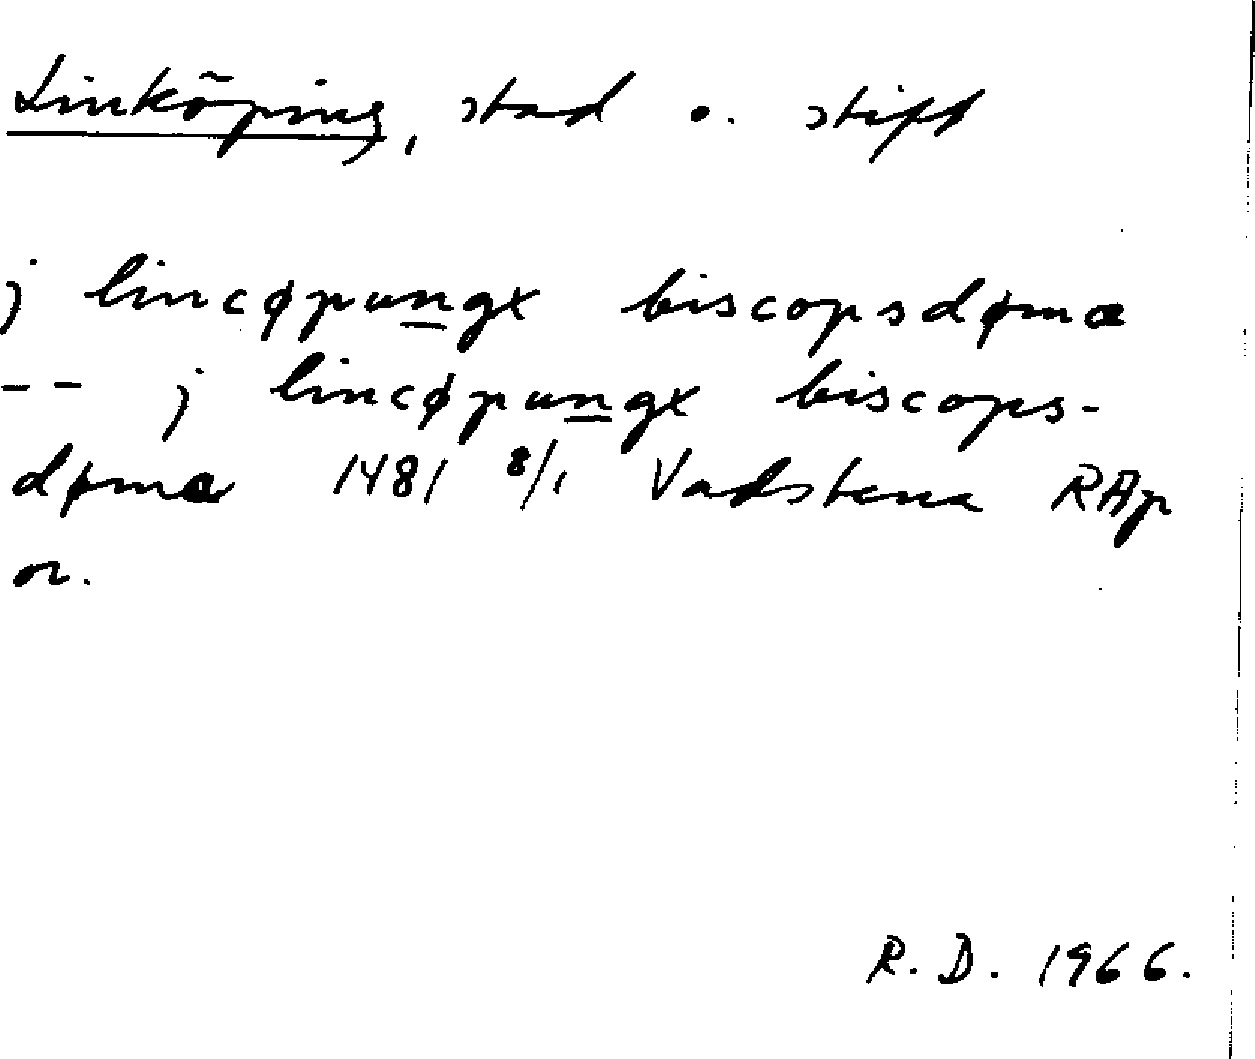 Linköping, stad o. stift
j lincøpungx biscopsdømæ
-- j lincøpungx biscops-
dømæ 1481 8/1 Vadstena RAp
or.
R. D. 1966.